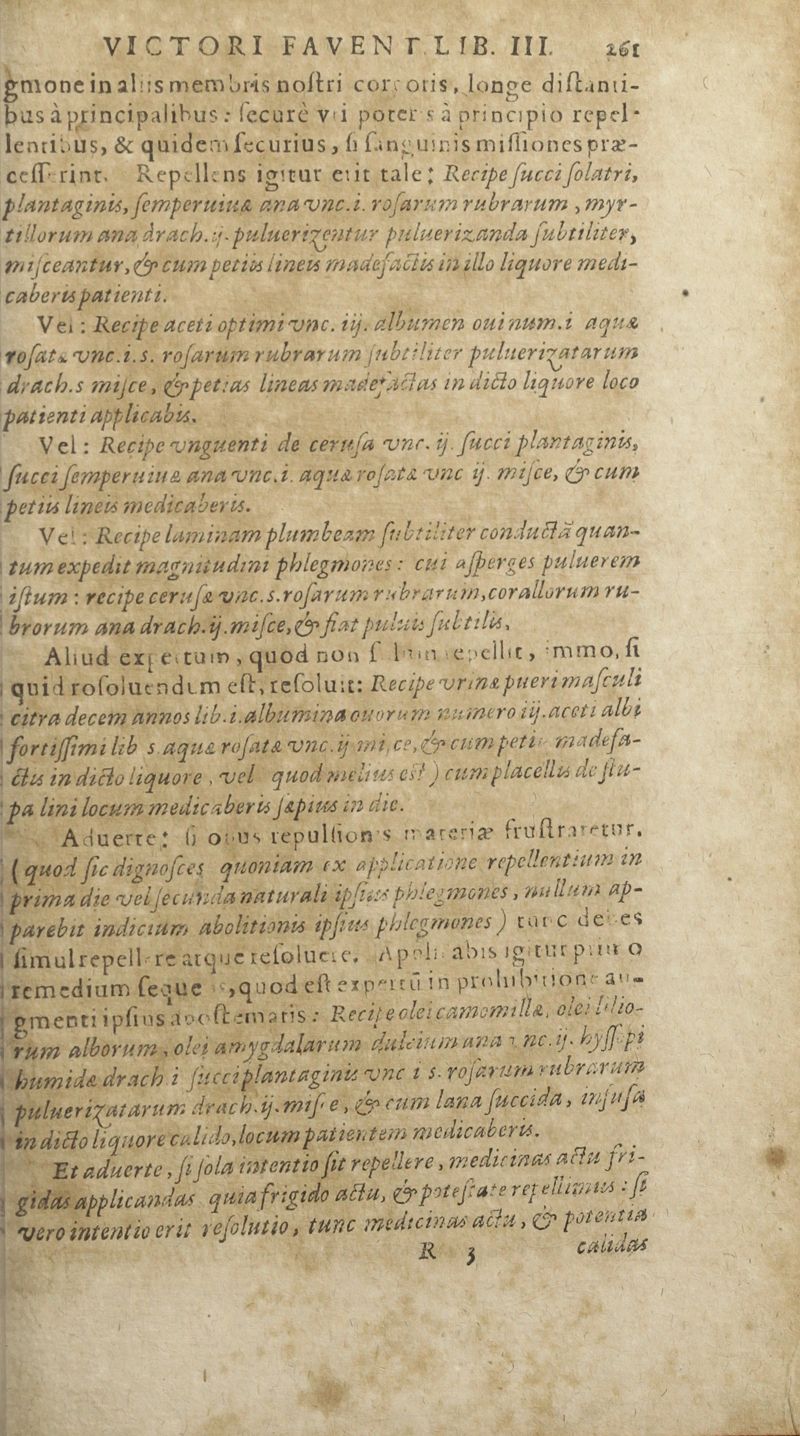 VICTORI FAVENT. LIB. III. 261
gmone in aliis membris nostri corporis, longe distanti-
bus à principalibus: securè vti poteris à principio repel-
lentibus, & quidem securius, si sanguinis missiones præ-
cesserint. Repellens igitur erit tale: Recipe succi solatri,
plantaginis, semperuiuæ ana vnc.i. rosarum rubrarum, myr-
tillorum ana drach.ij. puluerizentur puluerizanda subtiliter,
misceantur, & cum petiis lineis madefactis in illo liquore medi-
caberis patienti.
Vel: Recipe aceti optimi vnc. iij. albumen oui num.i aquæ
rosatæ vnc.i.s. rosarum rubrarum subtiliter puluerizatarum
drach.s misce, & petias lineas madefactas in dicto liquore loco
patienti applicabis.
Vel: Recipe vnguenti de cerusa vnc. ij. succi plantaginis,
succi semperuiuæ ana vnc.i. aquæ rosatæ vnc ij. misce, & cum
petiis lineis medicaberis.
Vel: Recipe laminam plumbeam subtiliter conductā quan-
tum expedit magnitudini phlegmones: cui asperges puluerem
istum: recipe cerusæ vnc.s. rosarum rubrarum, corallorum ru-
brorum ana drach.ij. misce, & fiat puluis subtilis.
Aliud expertum, quod non repellit, immo, si
quid rosoluendum est, resoluit: Recipe vrinæ pueri masculi
citra decem annos lib.i. albumina ouorum numero iij. aceti albi
fortissimi lib s. aquæ rosatæ vnc.ij misce, & cum petiis madefa-
ctis in dicto liquore, vel quod melius est) cum placellis de stu-
pa lini locum medicaberis sæpius in die.
Aduerte: si opus repulsionis materiæ frustraretur.
(quod sic dignosces quoniam ex applicatione repellentium in
prima die vel secunda naturali ipsius phlegmones, nullum ap-
parebit indicium abolitionis ipsius phlegmones) tunc debes
simul repellere atque resoluere. Applicabis igitur
remedium seque quod est expertū in prohibitione au-
gmenti ipsius apostematis: Recipe olei camomillæ, olei lilio-
rum alborum, olei amygdalarum dulcium ana vnc.ij. hyssopi
humidæ drach i succi plantaginis vnc i s. rosarum rubrarum
puluerizatarum drach.ij. misce, & cum lana succida, infusa
in dicto liquore calido, locum patientem medicaberis.
Et aduerte, si sola intentio sit repellere, medicinas actu fri-
gidas applicandas quia frigido actu, & potestate repellimus: si
vero intentio erit resolutio, tunc medicinas actu, & potentia
R 3 calidas